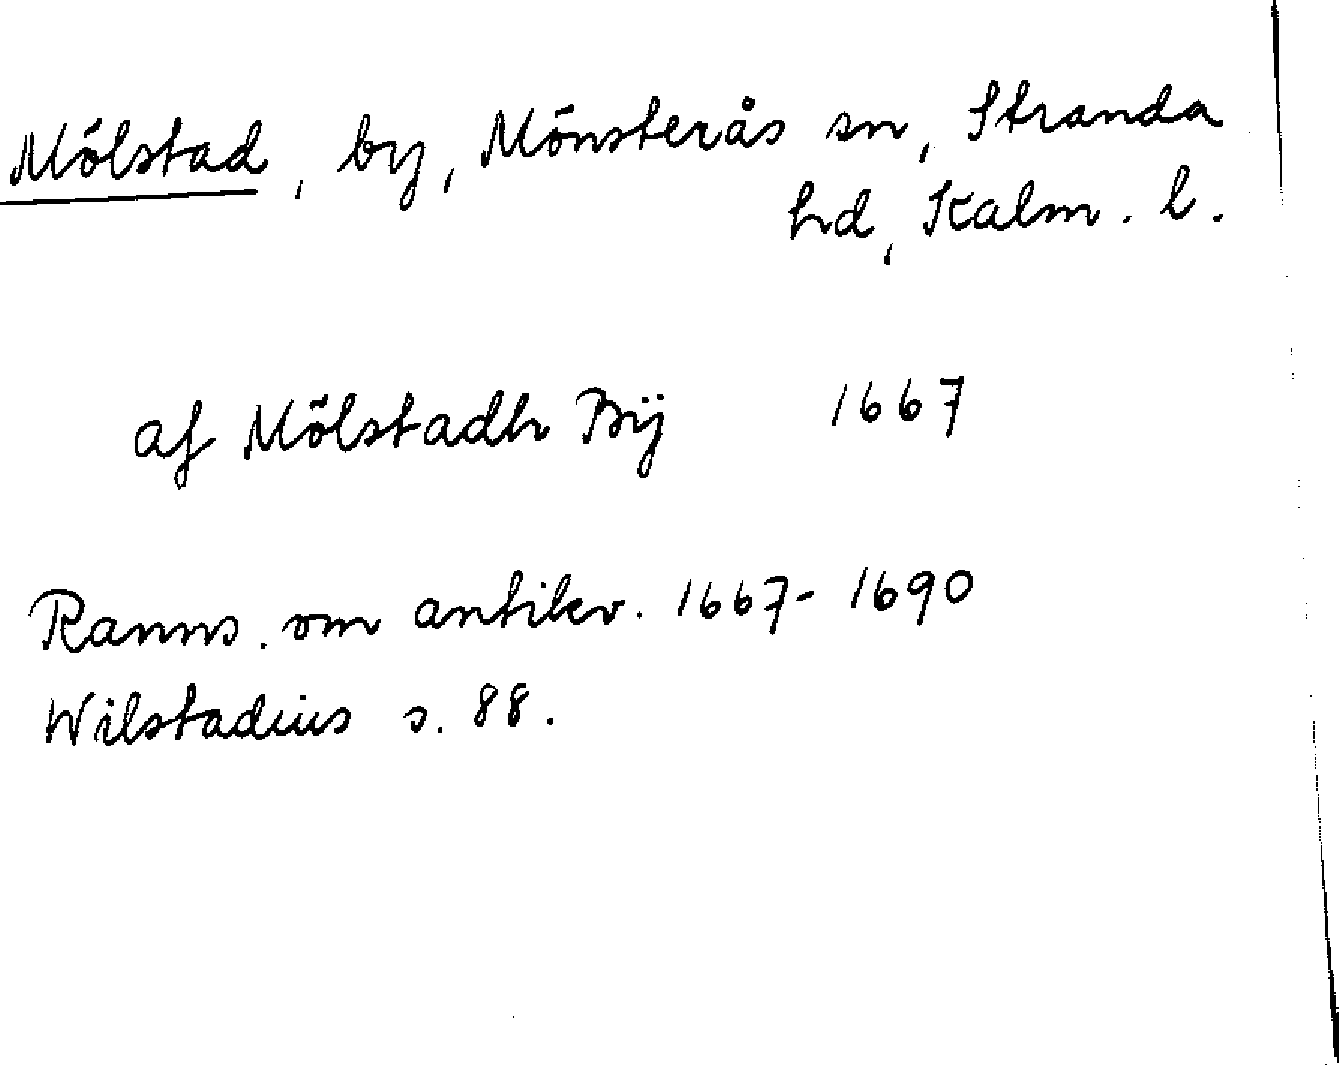 Mölstad, by, Mönsterås sn, Stranda
hd, Kalm. l.
af Mölstadh Bÿ 1667
Ranns. om antikv. 1667-1690
Wilstadius s. 88.